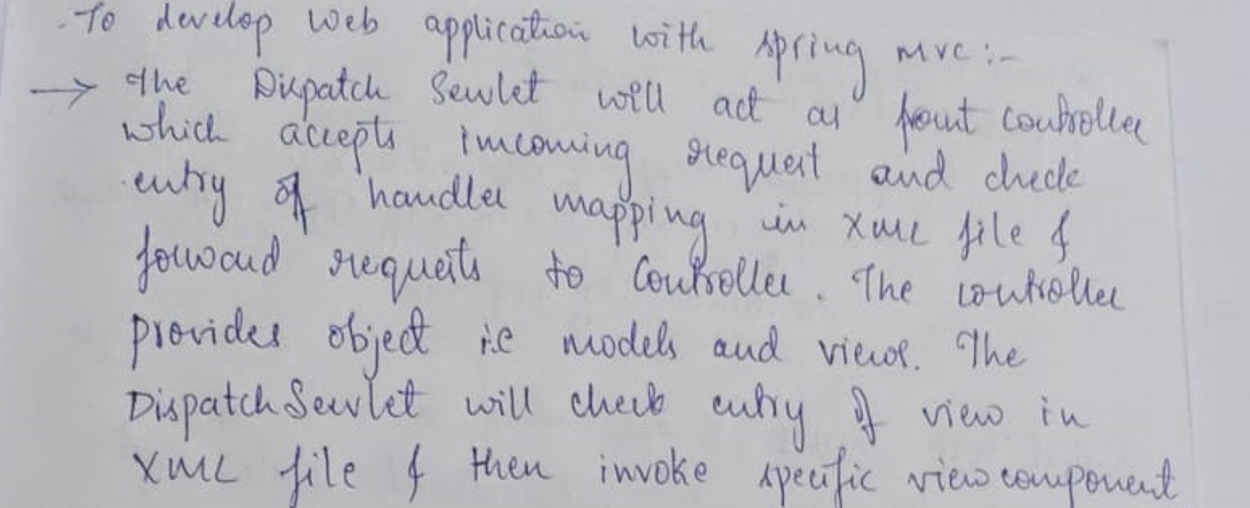 .To develop Web application with spring mvc:-
→ The Dispatch Servlet will act as front controller
which accepts incoming request and check
entry of handler mapping in XML file &
forward requests to Controller. The controller
provides object i.e models and views. The
DispatchServlet will check entry of view in
XML file & then invoke specific view component